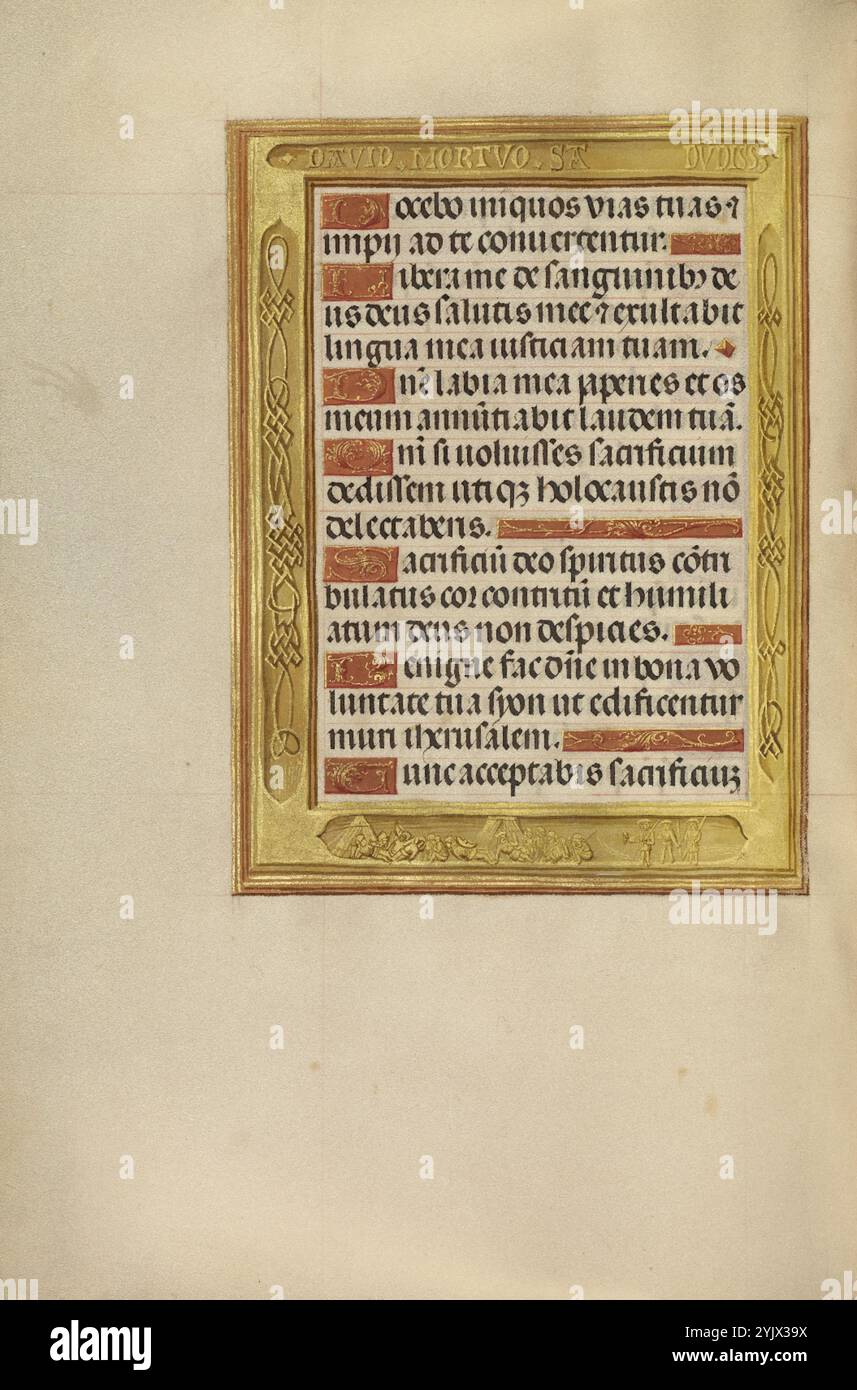 DAVID. MORTVO. SA DVDISS
Docebo iniquos vias tuas ⁊
impij ad te conuertentur.
Libera me de sanguinibꝫ de
us deus salutis mee ⁊ exultabit
lingua mea iusticiam tuam.
Dn̄e labia mea aperies et os
meum annūtiabit laudem tuā.
Qm̄ si uoluisses sacrificium
dedissem utiqꝫ holocaustis nō
delectaberis.
Sacrificiū deo spiritus cōtri
bulatus cor contritū et humili
atum deus non despicies.
Benigne fac dn̄e in bona vo
luntate tua syon ut edificentur
muri iherusalem.
Tunc acceptabis sacrificiuꝫ
alamy
Image ID: 2YJX39X
www.alamy.com